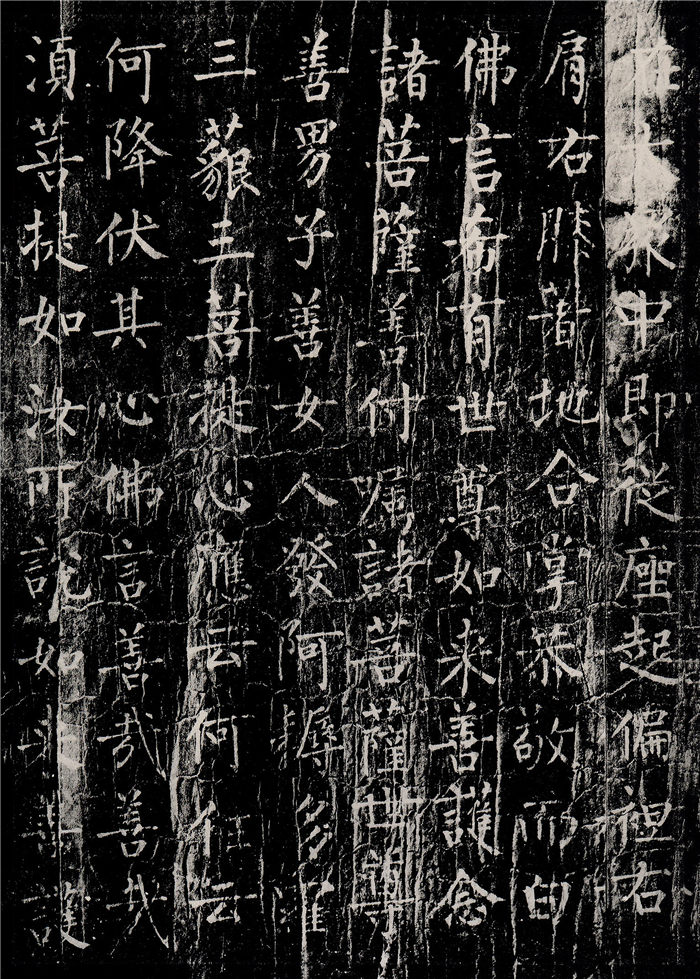 在大眾中即從座起偏袒右
肩右膝著地合掌恭敬而白
佛言希有世尊如来善護念
諸菩薩善付囑諸菩薩世尊
善男子善女人發阿耨多羅
三藐三菩提心應云何住云
何降伏其心佛言善哉善哉
須菩提如汝所說如来善護